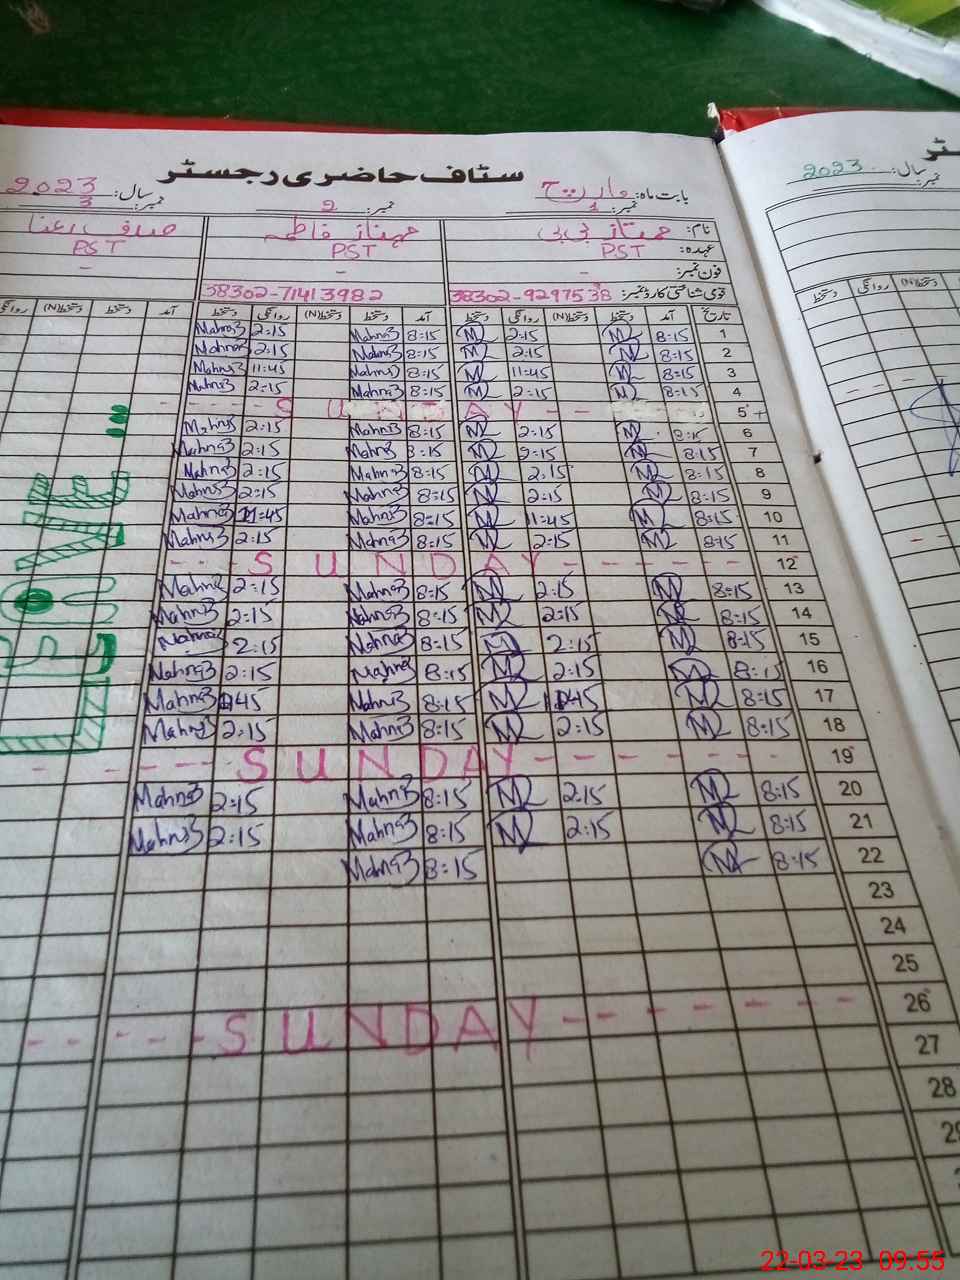 سٹاف حاضری رجسٹر
بابت ماہ: مارچ سال: 2023
نمبر: 1 نمبر: 2 نمبر: 3
نام: ممتاز بی بی مہناز فاطمہ صدف رعنا
عہدہ: PST PST PST
فون نمبر: - - -
قومی شناختی کارڈ نمبر: 38302-9297538 38302-71413982
تاریخ آمد دستخط دستخط(N) روانگی دستخط آمد دستخط دستخط(N) روانگی دستخط آمد دستخط دستخط(N) روانگی
1 8:15 M 2:15 M 8:15 Mahnaz 2:15 Mahnaz
2 8:15 M 2:15 M 8:15 Mahnaz 2:15 Mahnaz
3 8:15 M 11:45 M 8:15 Mahnaz 11:45 Mahnaz
4 8:15 M 2:15 M 8:15 Mahnaz 2:15 Mahnaz
5 SUNDAY
6 8:15 M 2:15 M 8:15 Mahnaz 2:15 Mahnaz
7 8:15 M 2:15 M 8:15 Mahnaz 2:15 Mahnaz
8 8:15 M 2:15 M 8:15 Mahnaz 2:15 Mahnaz
9 8:15 M 2:15 M 8:15 Mahnaz 2:15 Mahnaz
10 8:15 M 11:45 M 8:15 Mahnaz 11:45 Mahnaz
11 8:15 M 2:15 M 8:15 Mahnaz 2:15 Mahnaz
12 SUNDAY
13 8:15 M 2:15 M 8:15 Mahnaz 2:15 Mahnaz
14 8:15 M 2:15 M 8:15 Mahnaz 2:15 Mahnaz
15 8:15 M 2:15 M 8:15 Mahnaz 2:15 Mahnaz
16 8:15 M 2:15 M 8:15 Mahnaz 2:15 Mahnaz
17 8:15 M 11:45 M 8:15 Mahnaz 11:45 Mahnaz
18 8:15 M 2:15 M 8:15 Mahnaz 2:15 Mahnaz
19 SUNDAY
20 8:15 M 2:15 M 8:15 Mahnaz 2:15 Mahnaz
21 8:15 M 2:15 M 8:15 Mahnaz 2:15 Mahnaz
22 8:15 M 8:15 Mahnaz
23
24
25
26 SUNDAY
27
28
LEAVE...
سال: 2023
نمبر:
دستخط(N) روانگی دستخط
22-03-23 09:55